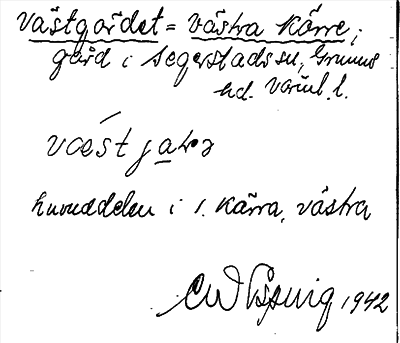 västgårdet = västra Kärre;
gård i Segerstads sn, Grums
hd. Värml. l.
vǽst jaɳə
huvuddelen i 1. Kärra, västra
1942